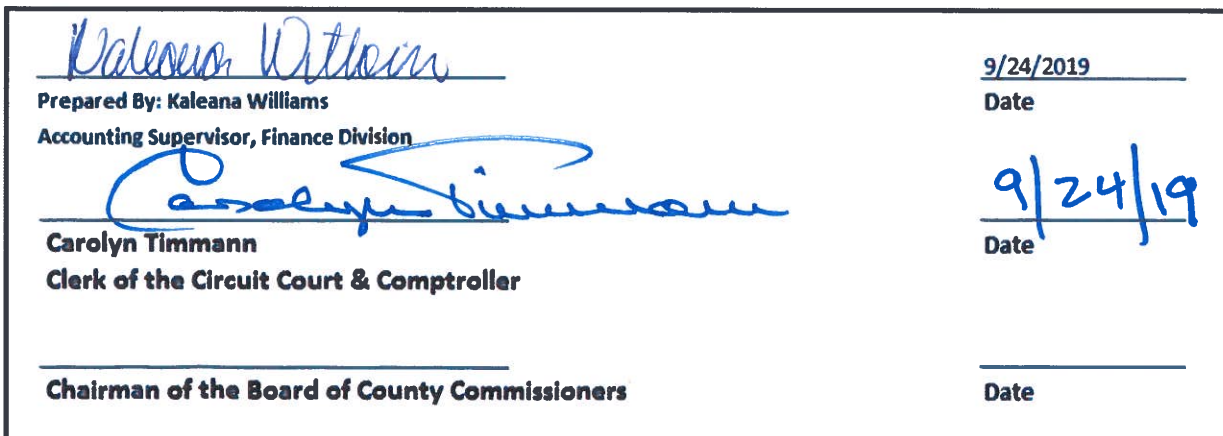 Kaleana Williams
9/24/2019
Prepared By: Kaleana Williams
Date
Accounting Supervisor, Finance Division
Carolyn Timmann
9/24/19
Carolyn Timmann
Date
Clerk of the Circuit Court & Comptroller
Chairman of the Board of County Commissioners
Date